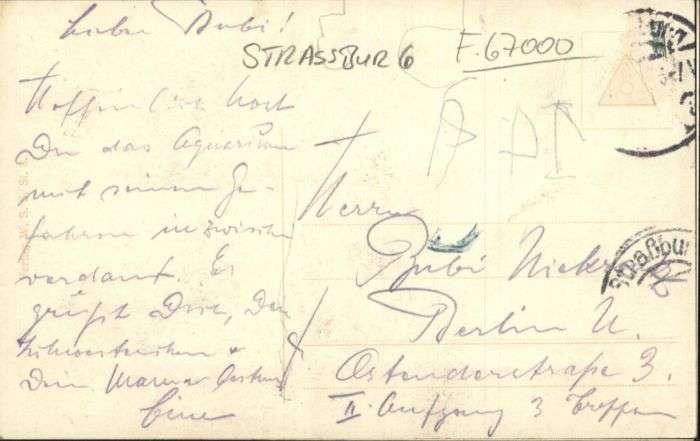 Lieber Bubi!
STRASSBURG F. 67000
Hoffentlich hast
Du das Aquarium
mit seinen Ge-
fahren inzwischen
verdaut. Es
grüßt Dich, Dein
Schwesterchen &
Deine Mama
Herrn
Bubi
Berlin N.
Ostenderstraße 3.
II. Aufgang 3 Treppen
Straßbu